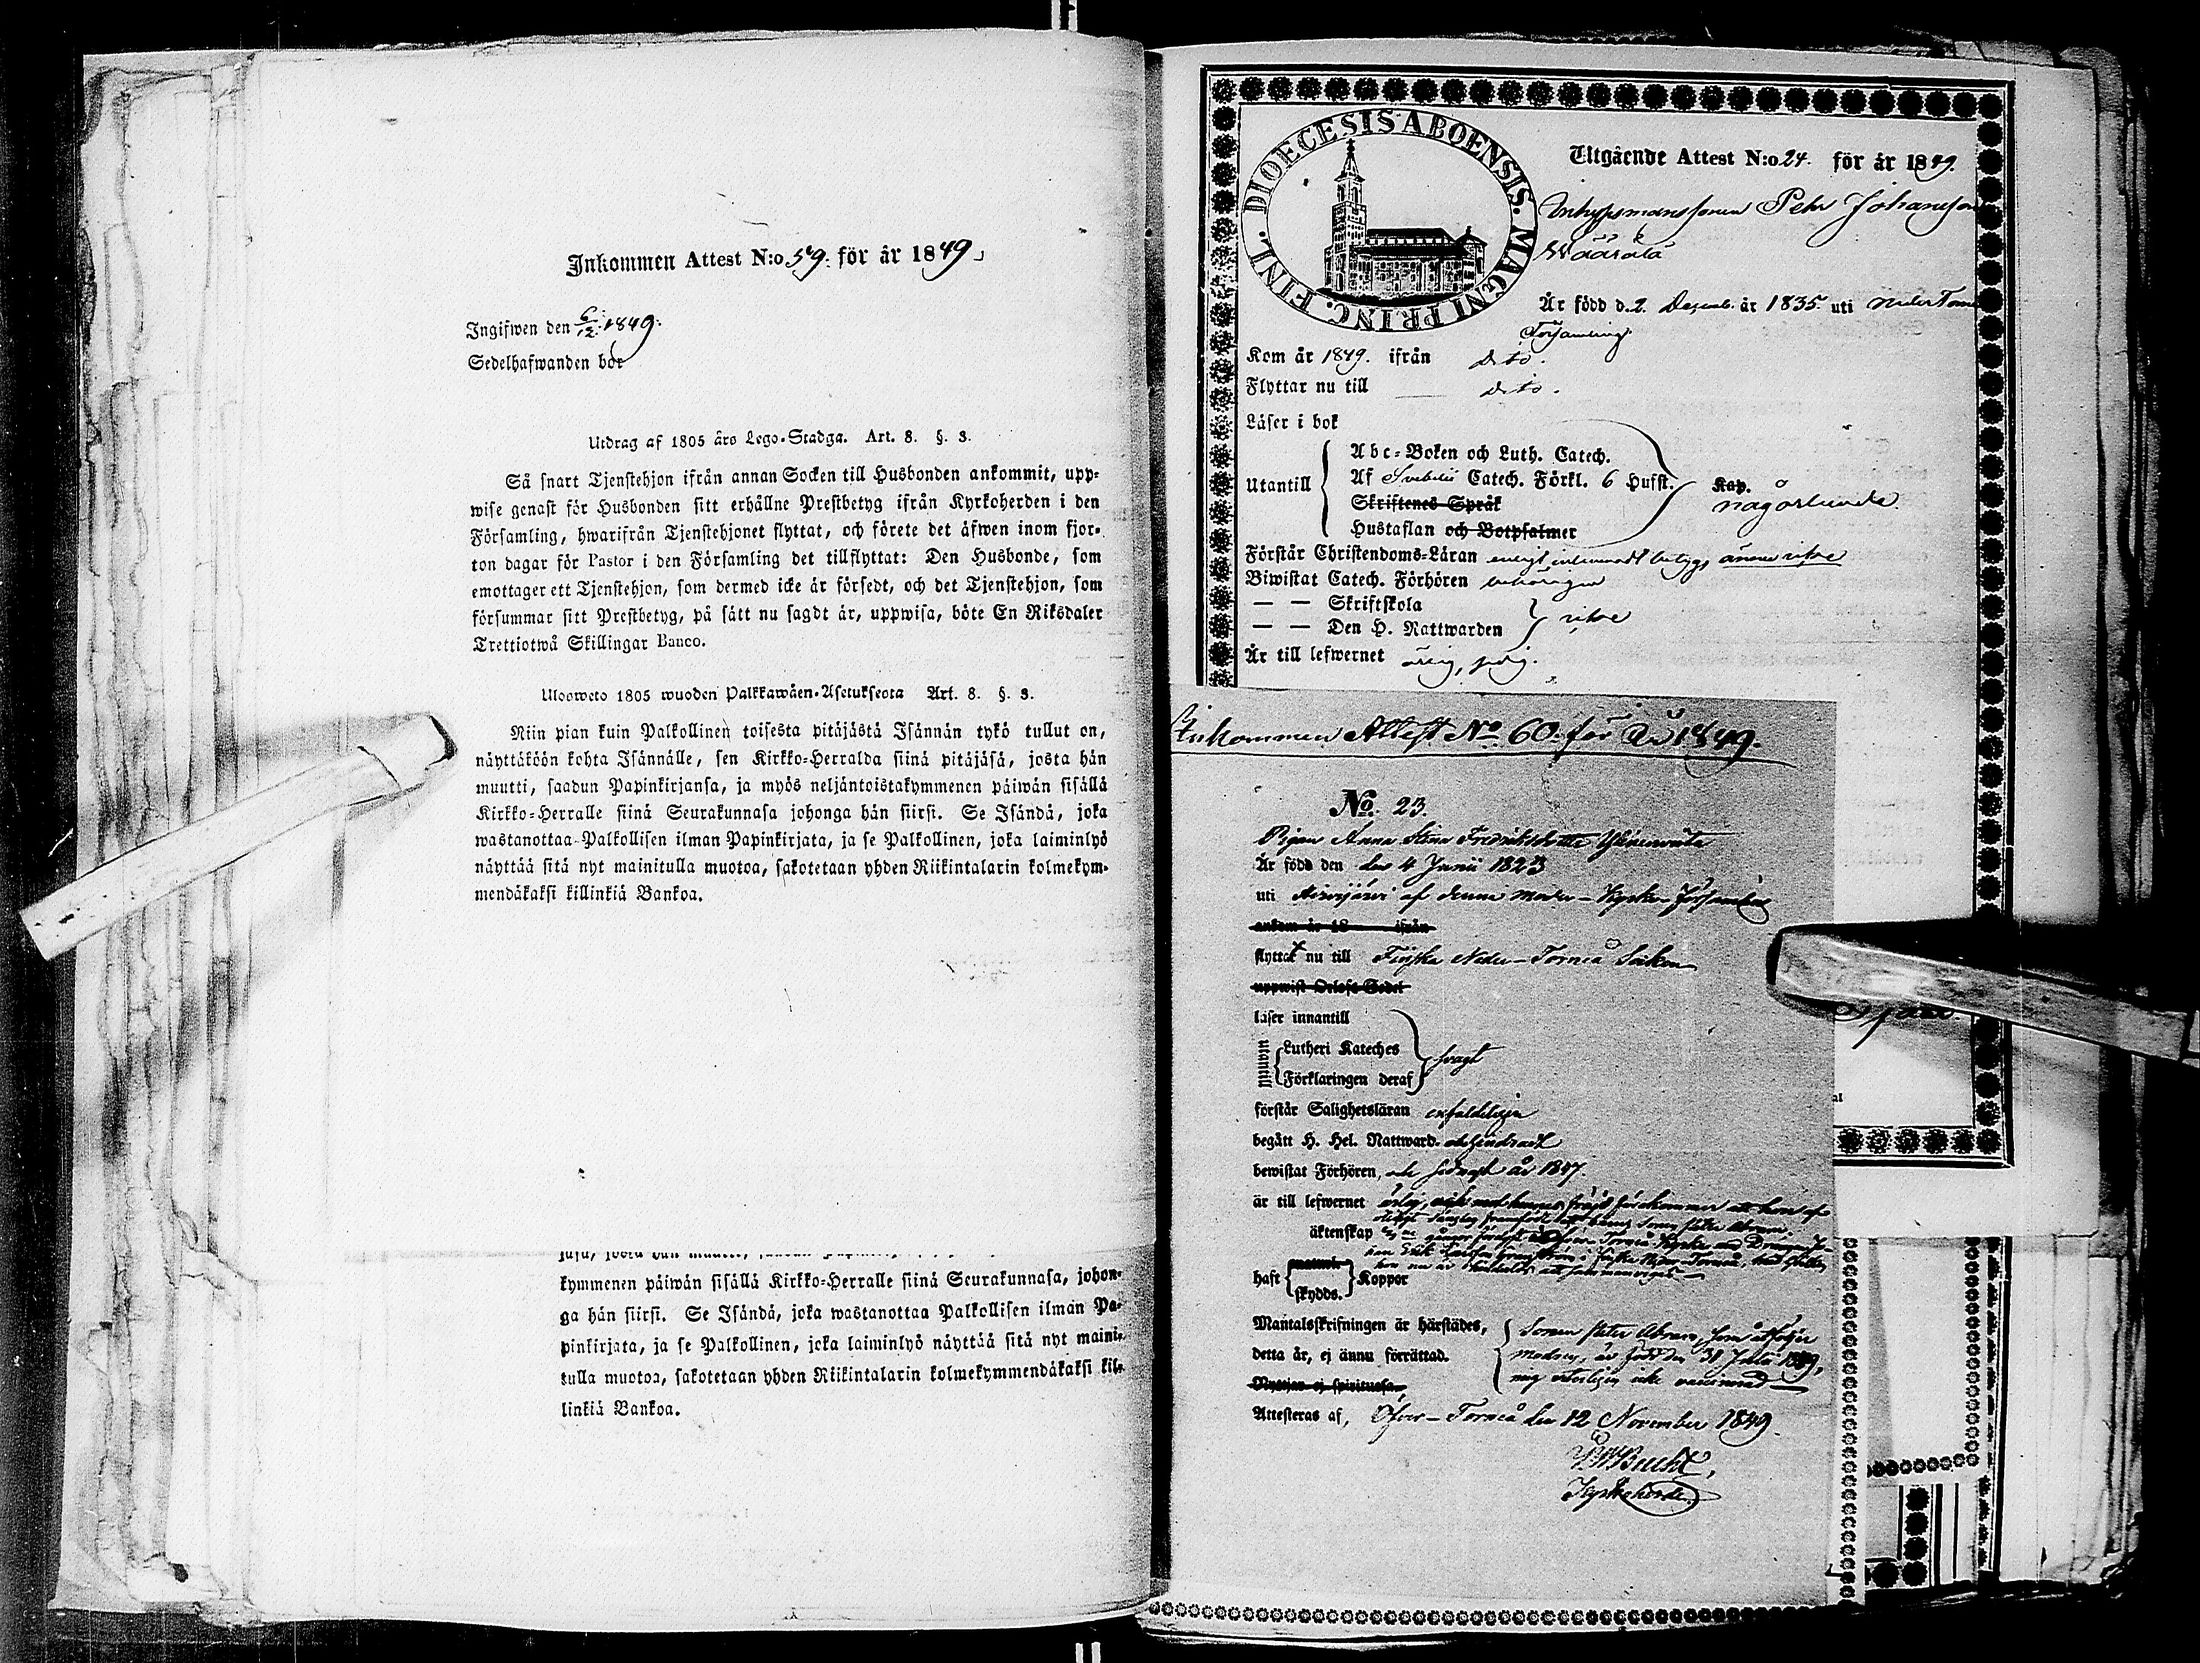 Inkommen Attest N:o 59. för år 1849
Ingifwen den 6/12. 1849.
Sedelhafwanden bor
Utdrag af 1805 års Lego-Stadga. Art. 8. §. 3.
Så snart Tjenstehjon ifrån annan Socken till Husbonden ankommit, upp-
wise genast för Husbonden sitt erhållne Prestbetyg ifrån Kyrkoherden i den
Församling, hwarifrån Tjenstehjonet flyttat, och förete det äfwen inom fjor-
ton dagar för Pastor i den Församling det tillflyttat: Den Husbonde, som
emottager ett Tjenstehjon, som dermed icke är försedt, och det Tjenstehjon, som
försummar sitt Prestbetyg, på sätt nu sagdt är, uppwisa, böte En Riksdaler
Trettiotwå Skillingar Banco.
Ulosweto 1805 wuoden Palkkawäen-Asetuksesta Art. 8. §. 3.
Niin pian kuin Palkollinen toisesta pitäjästä Isännän tykö tullut on,
näyttäköön kohta Isännälle, sen Kirkko-Herralda siinä pitäjäsä, josta hän
muutti, saadun Papinkirjansa, ja myös neljäntoistakymmenen päiwän sisällä
Kirkko-Herralle siinä Seurakunnasa johonga hän siirsi. Se Isändä, joka
wastanottaa Palkollisen ilman Papinkirjata, ja se Palkollinen, joka laiminlyö
näyttää sitä nyt mainitulla muotoa, sakotetaan yhden Riikintalarin kolmekym-
mendäkaksi killinkiä Bankoa.
kymmenen päiwän sisällä Kirkko-Herralle siinä Seurakunnasa, johon-
ga hän siirsi. Se Isändä, joka wastanottaa Palkollisen ilman Pa-
pinkirjata, ja se Palkollinen, joka laiminlyö näyttää sitä nyt maini-
tulla muotoa, sakotetaan yhden Riikintalarin kolmekymmendäkaksi kil-
linkiä Bankoa.
DIOECESIS ABOENSIS. MAGNI PRINC. FINL.
Utgående Attest N:o 24. för år 1849.
Inhysmanssonen Pehr Johansson
Määrälä
Är född d. 2. Decemb. år 1835. uti Neder Torne
Församling
Kom år 1849. ifrån d:to.
Flyttar nu till d:to.
Läser i bok
Utantill
Abc-Boken och Luth. Catech.
Af Svebelii Catech. Förkl. 6 Hufst.
Skriftenes Språk
Hustaflan och Botpsalmer
Kap.
någorlunda.
Förstår Christendoms-Läran enligt betyg ännu icke
Biwistat Catech. Förhören
— — Skriftskola
— — Den H. Nattwarden
icke
Är till lefwernet ärlig,
Inkommen Attest No. 60. för år 1849.
No. 23.
Pigan Anna Stina Fredriksdotter
Är född den den 4 Junii 1823
uti af denna Moder-Kyrko-Församling
ankom år 18 ifrån
flyttar nu till Finska Neder-Torneå Socken
uppwist Orlofs-Sedel
läser innantill
utantill
Lutheri Kateches
Förklaringen deraf
svagt
förstår Salighetsläran enfaldeligen
begått H. Hel. Nattward. obehindrad
bewistat Förhören, och sednast år 1847.
är till lefwernet ärlig,
äktenskap
haft
naturl.
skydds.
Koppor
Mantalsskrifningen är härstädes,
detta år, ej ännu förrättad.
Nyttjar ej spirituosa,
Sonen Peter Abram, som åtföljer
modren, är född den 31 Julii 1849,
Attesteras af, Öfver-Torneå den 12 November 1849.
Kyrkoherde.